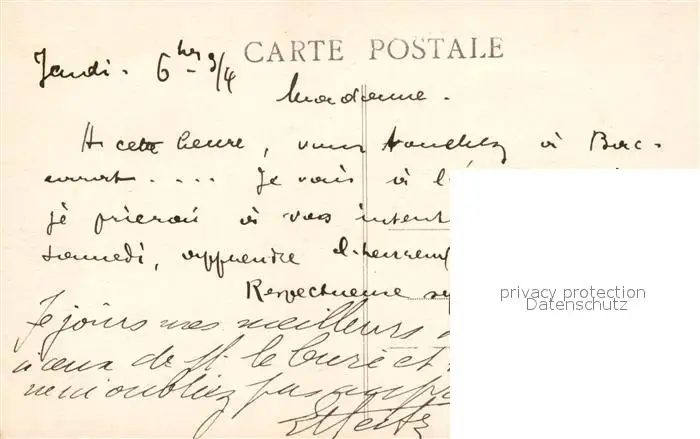 CARTE POSTALE
Jeudi. 6 hes 3/4
Madame.
A cette heure, vous touchez à Bac-
carat.... Je vais à
je prierai à vos intent
samedi, apprendre d'heureus
Respectueuse sy
Je joins mes meilleurs
vœux de M. le Curé et
ne m'oubliez pas
privacy protection
Datenschutz